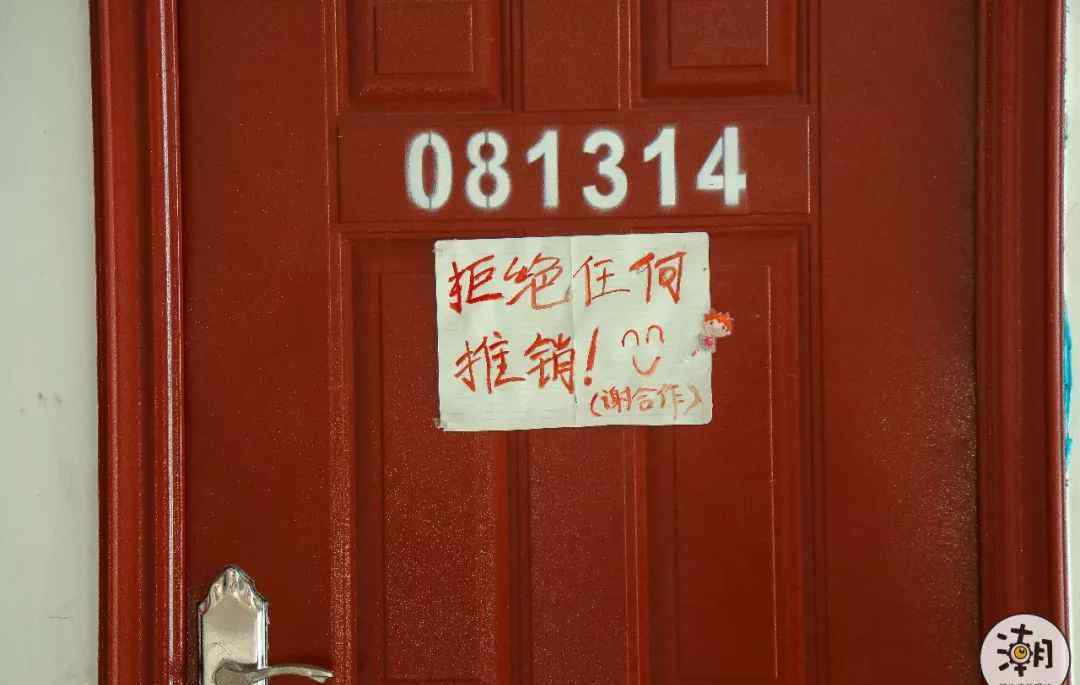 081314
拒绝任何
推销!
(谢合作)
潮